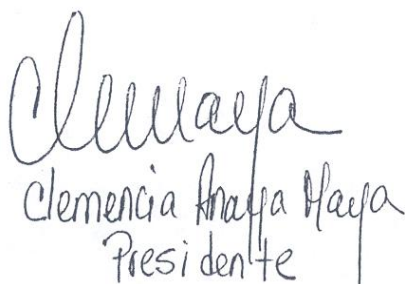 Clemaya
Clemencia Anaya Maya
Presidente